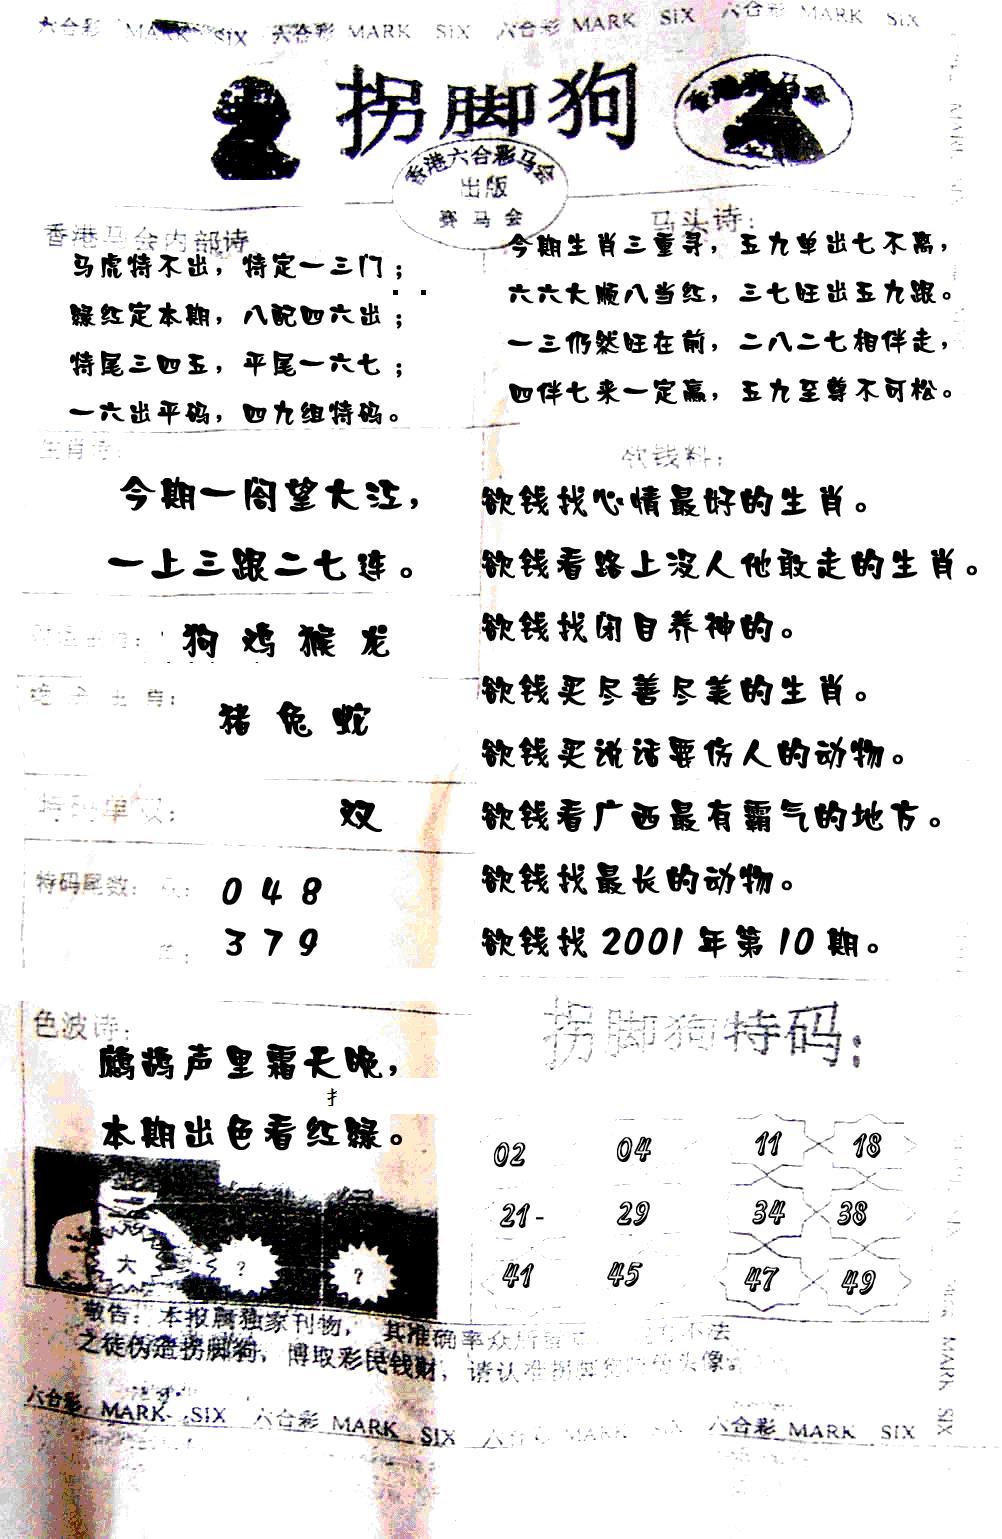 六合彩 MARK SIX 六合彩 MARK SIX 六合彩 MARK SIX 六合彩 MARK SIX
拐脚狗
香港六合彩马会
出版
赛马会
香港马会内部诗
马虎特不出，特定一三门；
绿红定本期，八配四六出；
特尾三四五，平尾一六七；
一六出平码，四九组特码。
马头诗：
今期生肖三重寻，五九单出七不离，
六六大顺八当红，三七旺出五九跟。
一三仍然旺在前，二八二七相伴走，
四伴七来一定赢，五九至尊不可松。
生肖诗：
今期一阁望大江，
一上三跟二七连。
狗 鸡 猴 龙
肖：
猪 兔 蛇
特码单双：
双
特码尾数：
0 4 8
3 7 9
欲钱料：
欲钱找心情最好的生肖。
欲钱看路上没人他敢走的生肖。
欲钱找闭目养神的。
欲钱买尽善尽美的生肖。
欲钱买说话要伤人的动物。
欲钱看广西最有霸气的地方。
欲钱找最长的动物。
欲钱找 2001 年第 10 期。
色波诗：
鹧鸪声里霜天晚，
扌
本期出色看红绿。
大 ? ?
拐脚狗特码：
02 04 11 18
21- 29 34 38
41 45 47 49
敬告：本报属独家刊物，其准确率众所 不法
之徒伪造拐脚狗，博取彩民钱财，请认准拐脚 头像。
六合彩 MARK SIX 六合彩 MARK SIX 六合彩 MARK SIX 六合彩 MARK SIX
MARK SIX